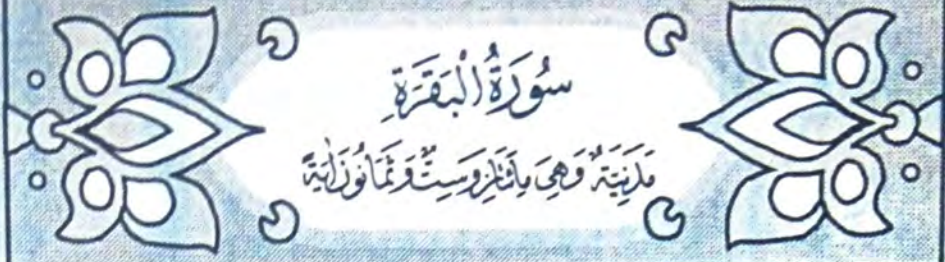 سُورَةُ الْبَقَرَةِ
مَدَنِيَّةٌ وَهِيَ مِائَتَانِ وَسِتٌّ وَثَمَانُونَ اٰيَةً